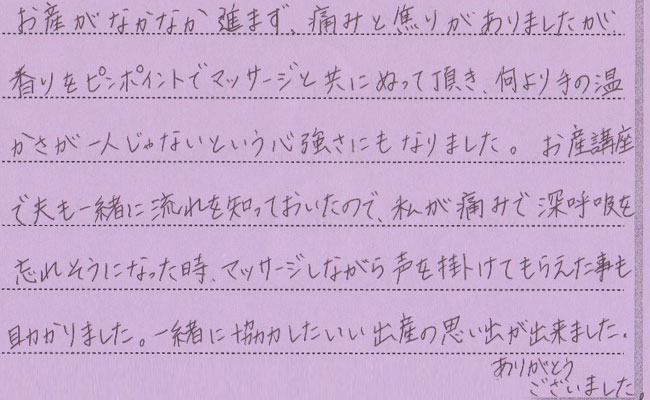 お産がなかなか進まず、痛みと焦りがありましたが、
香りをピンポイントでマッサージと共にぬって頂き、何より手の温
かさが一人じゃないという心強さにもなりました。お産講座
で夫も一緒に流れを知っておいたので、私が痛みで深呼吸を
忘れそうになった時、マッサージしながら声を掛けてもらえた事も
助かりました。一緒に協力したいい出産の思い出が出来ました。
ありがとう
ございました。